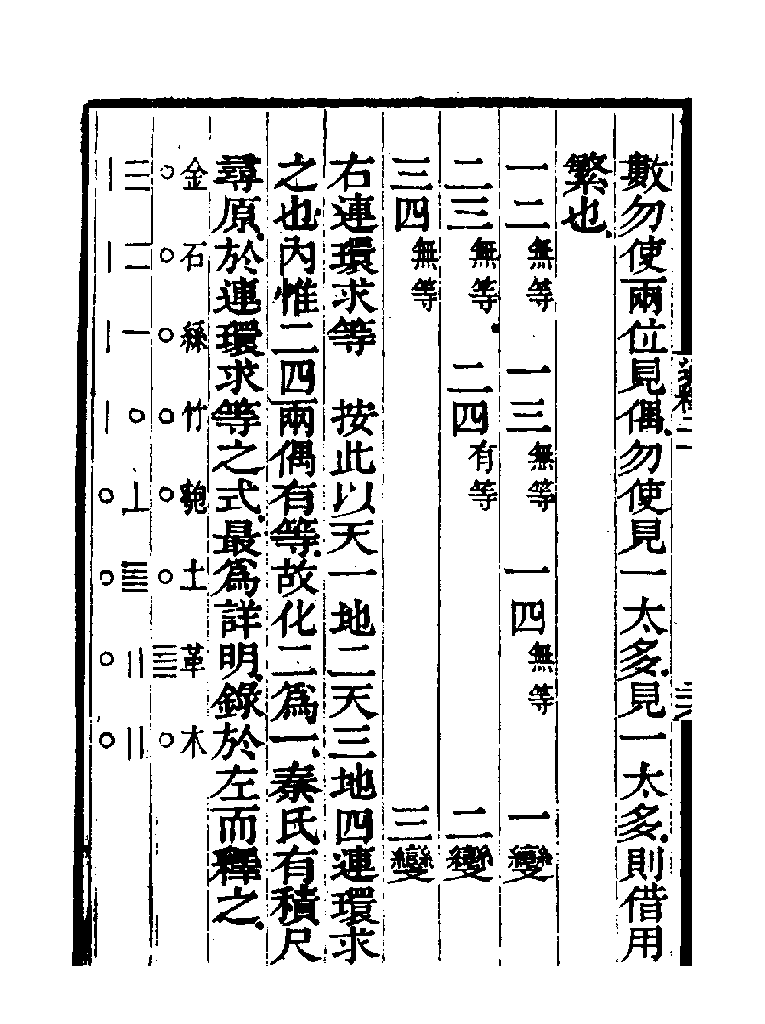 數勿使兩位見偶勿使見一太多見一太多則借用
繁也
一二無等 一三無等 一四無等 一變
二三無等 二四有等 二變
三四無等 三變
右連環求等 按此以天一地二天三地四連環求
之也內惟二四兩偶有等故化二爲一秦氏有積尺
尋原於連環求等之式最爲詳明錄於左而釋之
金 石 絲 竹 匏 土 革 木
○ ○ ○ ○ ○ ○ 𝍤 ○
三 二 一 ○ ⊥ 𝍤 || ||
| | | | ○ ○ ○ ○